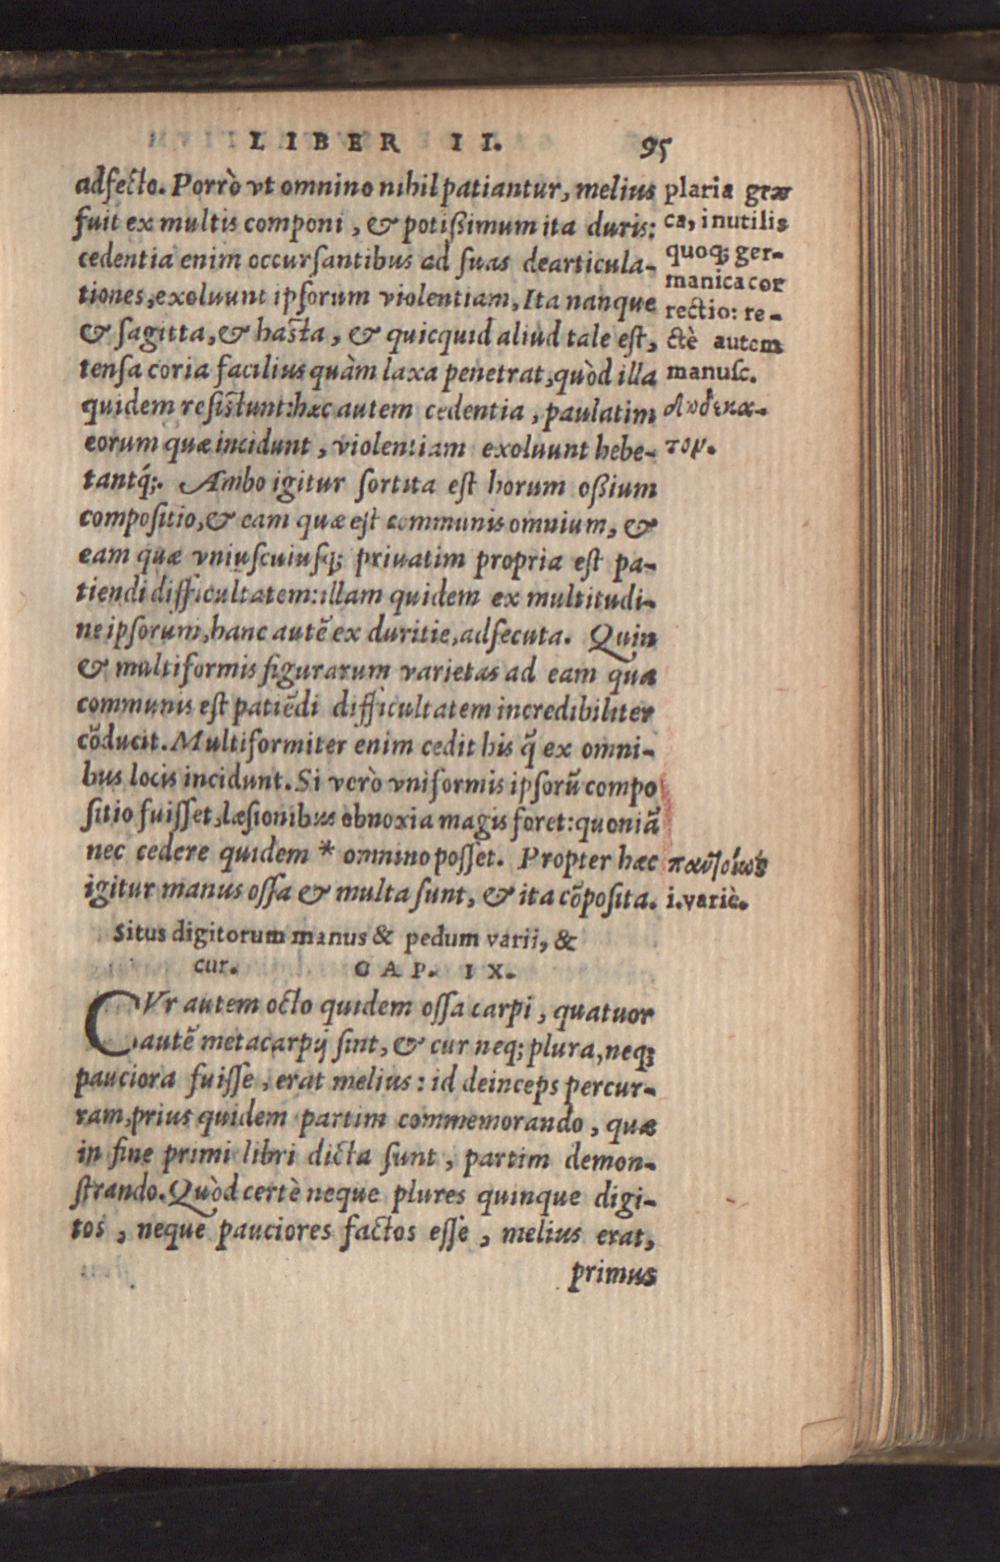 LIBER II. 95
adfecto. Porrò vt omnino nihil patiantur, melius
fuit ex multis componi, & potißimum ita duris:
cedentia enim occursantibus ad suas dearticula-
tiones, exoluunt ipsorum violentiam, Ita nanque
& sagitta, & hasta, & quicquid aliud tale est,
tensa coria facilius quàm laxa penetrat, quòd illa
quidem resistunt: hæc autem cedentia, paulatim
eorum quæ incidunt, violentiam exoluunt hebe-
tantq́;. Ambo igitur sortita est horum oßium
compositio, & eam quæ est communis omnium, &
eam quæ vniuscuiusq; priuatim propria est pa-
tiendi difficultatem: illam quidem ex multitudi-
ne ipsorum, hanc autē ex duritie, adsecuta. Quin
& multiformis figurarum varietas ad eam quæ
communis est patiēdi difficultatem incredibiliter
cōducit. Multiformiter enim cedit his q̃ ex omni-
bus locis incidunt. Si verò vniformis ipsorū compo
sitio fuisset, læsionibus obnoxia magis foret: quoniā
nec cedere quidem * omnino posset. Propter hæc
igitur manus ossa & multa sunt, & ita cōposita.
plaria græ
ca, inutilis
quoq; ger-
manica cor
rectio: re-
ctè autem
manusc.
i. variè.
Situs digitorum manus & pedum varii, &
cur. CAP. IX.
CVr autem octo quidem ossa carpi, quatuor
autē metacarpij sint, & cur neq; plura, neq;
pauciora fuisse, erat melius: id deinceps percur-
ram, prius quidem partim commemorando, quæ
in fine primi libri dicta sunt, partim demon-
strando. Quòd certè neque plures quinque digi-
tos, neque pauciores factos esse, melius erat,
primus